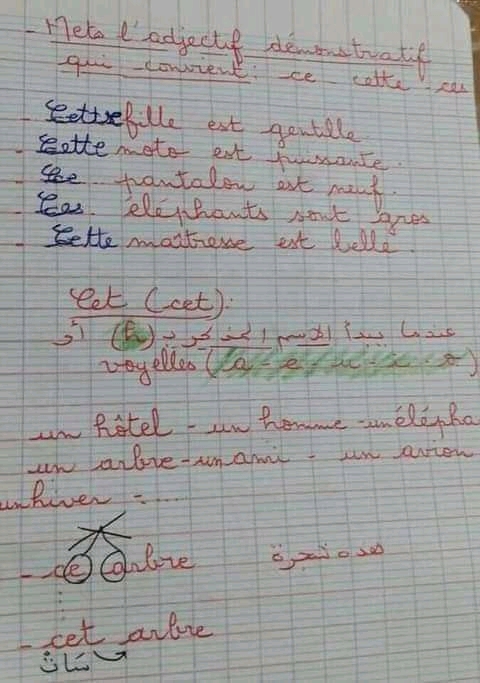 - Mets l'adjectif démonstratif
qui convient : ce - cette - ces
- Cette fille est gentille.
- Cette moto est puissante.
- Ce pantalon est neuf.
- Ces éléphants sont gros
- Cette maîtresse est belle.
Cet (cet) :
عندما يبدأ الاسم المذكر بـ (h) أو
voyelles (a - e - u - i - o)
un hôtel - un homme - un élépha
un arbre - un ami - un avion
un hiver - .....
- ce arbre هذه شجرة
- cet arbre
سَاتْ